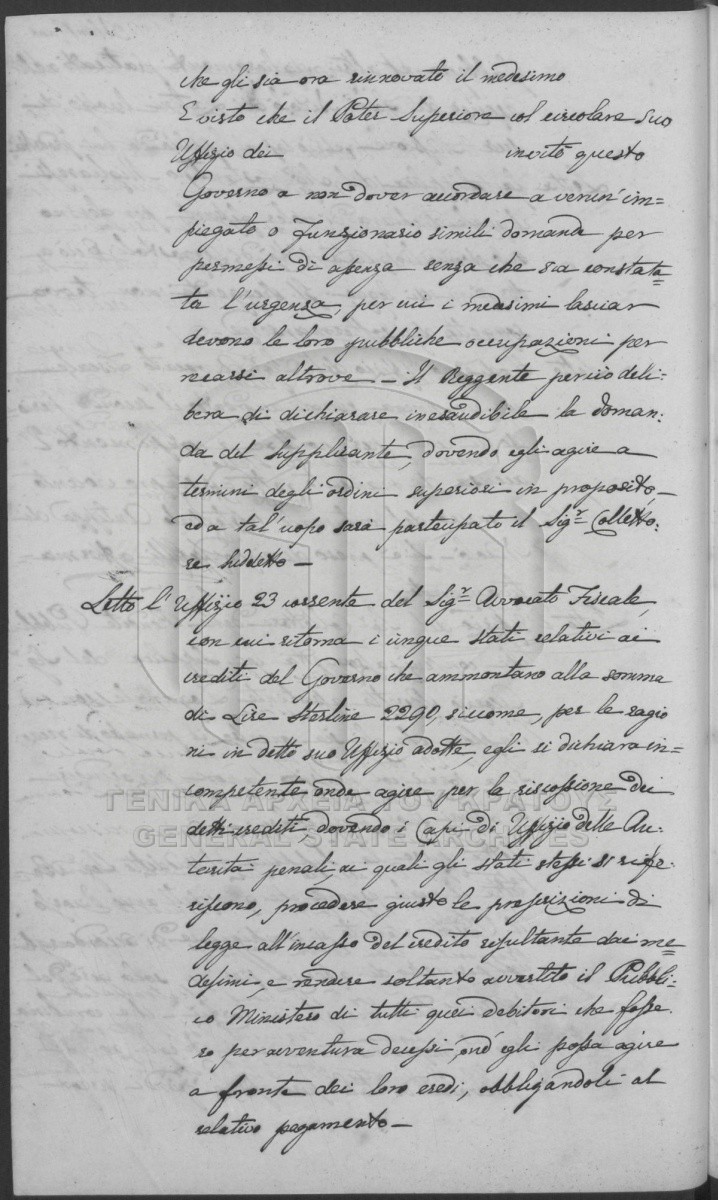 che gli sia ora rinnovato il medesimo
E visto che il Pater Superiore col circolare suo
Uffizio dei invitò questo
Governo a non dover accordare a verun' im=
piegato o Funzionario simili domanda per
permessi di assenza senza che sia constata=
ta l'urgenza, per cui i medesimi lasciar
devono le loro pubbliche occupazioni per
recarsi altrove – Il Reggente perciò deli=
bera di dichiarare inesaudibile la doman=
da del supplicante, dovendo egli agire a
termini degli ordini superiori in proposito –
ed a tal'uopo sarà partecipato il Sigr Colletto=
re suddetto –
Letto l'Uffizio 23 corrente del Sigr Avvocato Fiscale,
con cui ritorna i cinque stati relativi ai
crediti del Governo che ammontano alla somma
di Lire Sterline 2290, siccome, per le ragio
ni in detto suo Uffizio adotte, egli si dichiara in=
competente onde agire per la riscossione dei
detti crediti, dovendo i Capi di Uffizio delle Au=
torità penali, ai quali gli stati stessi si rife=
riscono, procedere giusto le prescrizioni di
legge all'incasso del credito risultante dai me=
desimi, e rendere soltanto avvertito il Pubbli=
co Ministero di tutti quei debitori che fosse=
ro per avventura decessi, ond' egli possa agire
a fronte dei loro eredi, obbligandoli al
relativo pagamento –
ΓΕΝΙΚΑ ΑΡΧΕΙΑ ΤΟΥ ΚΡΑΤΟΥΣ
GENERAL STATE ARCHIVES